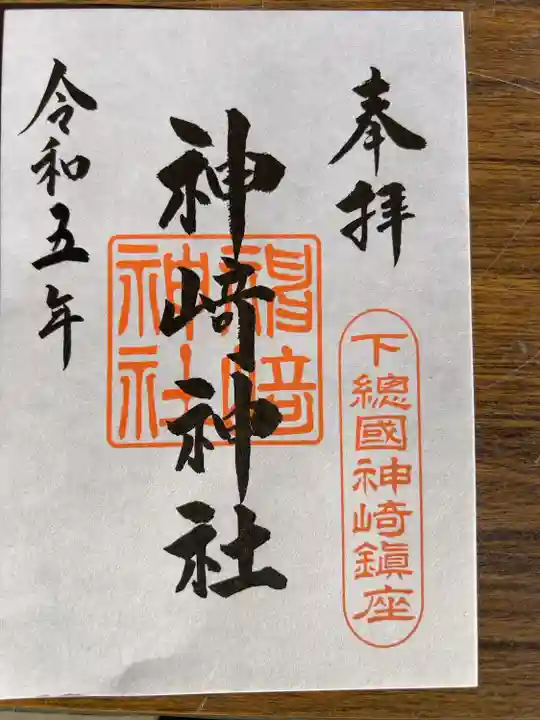 奉拝
下總國神崎鎮座
神崎神社
令和五年